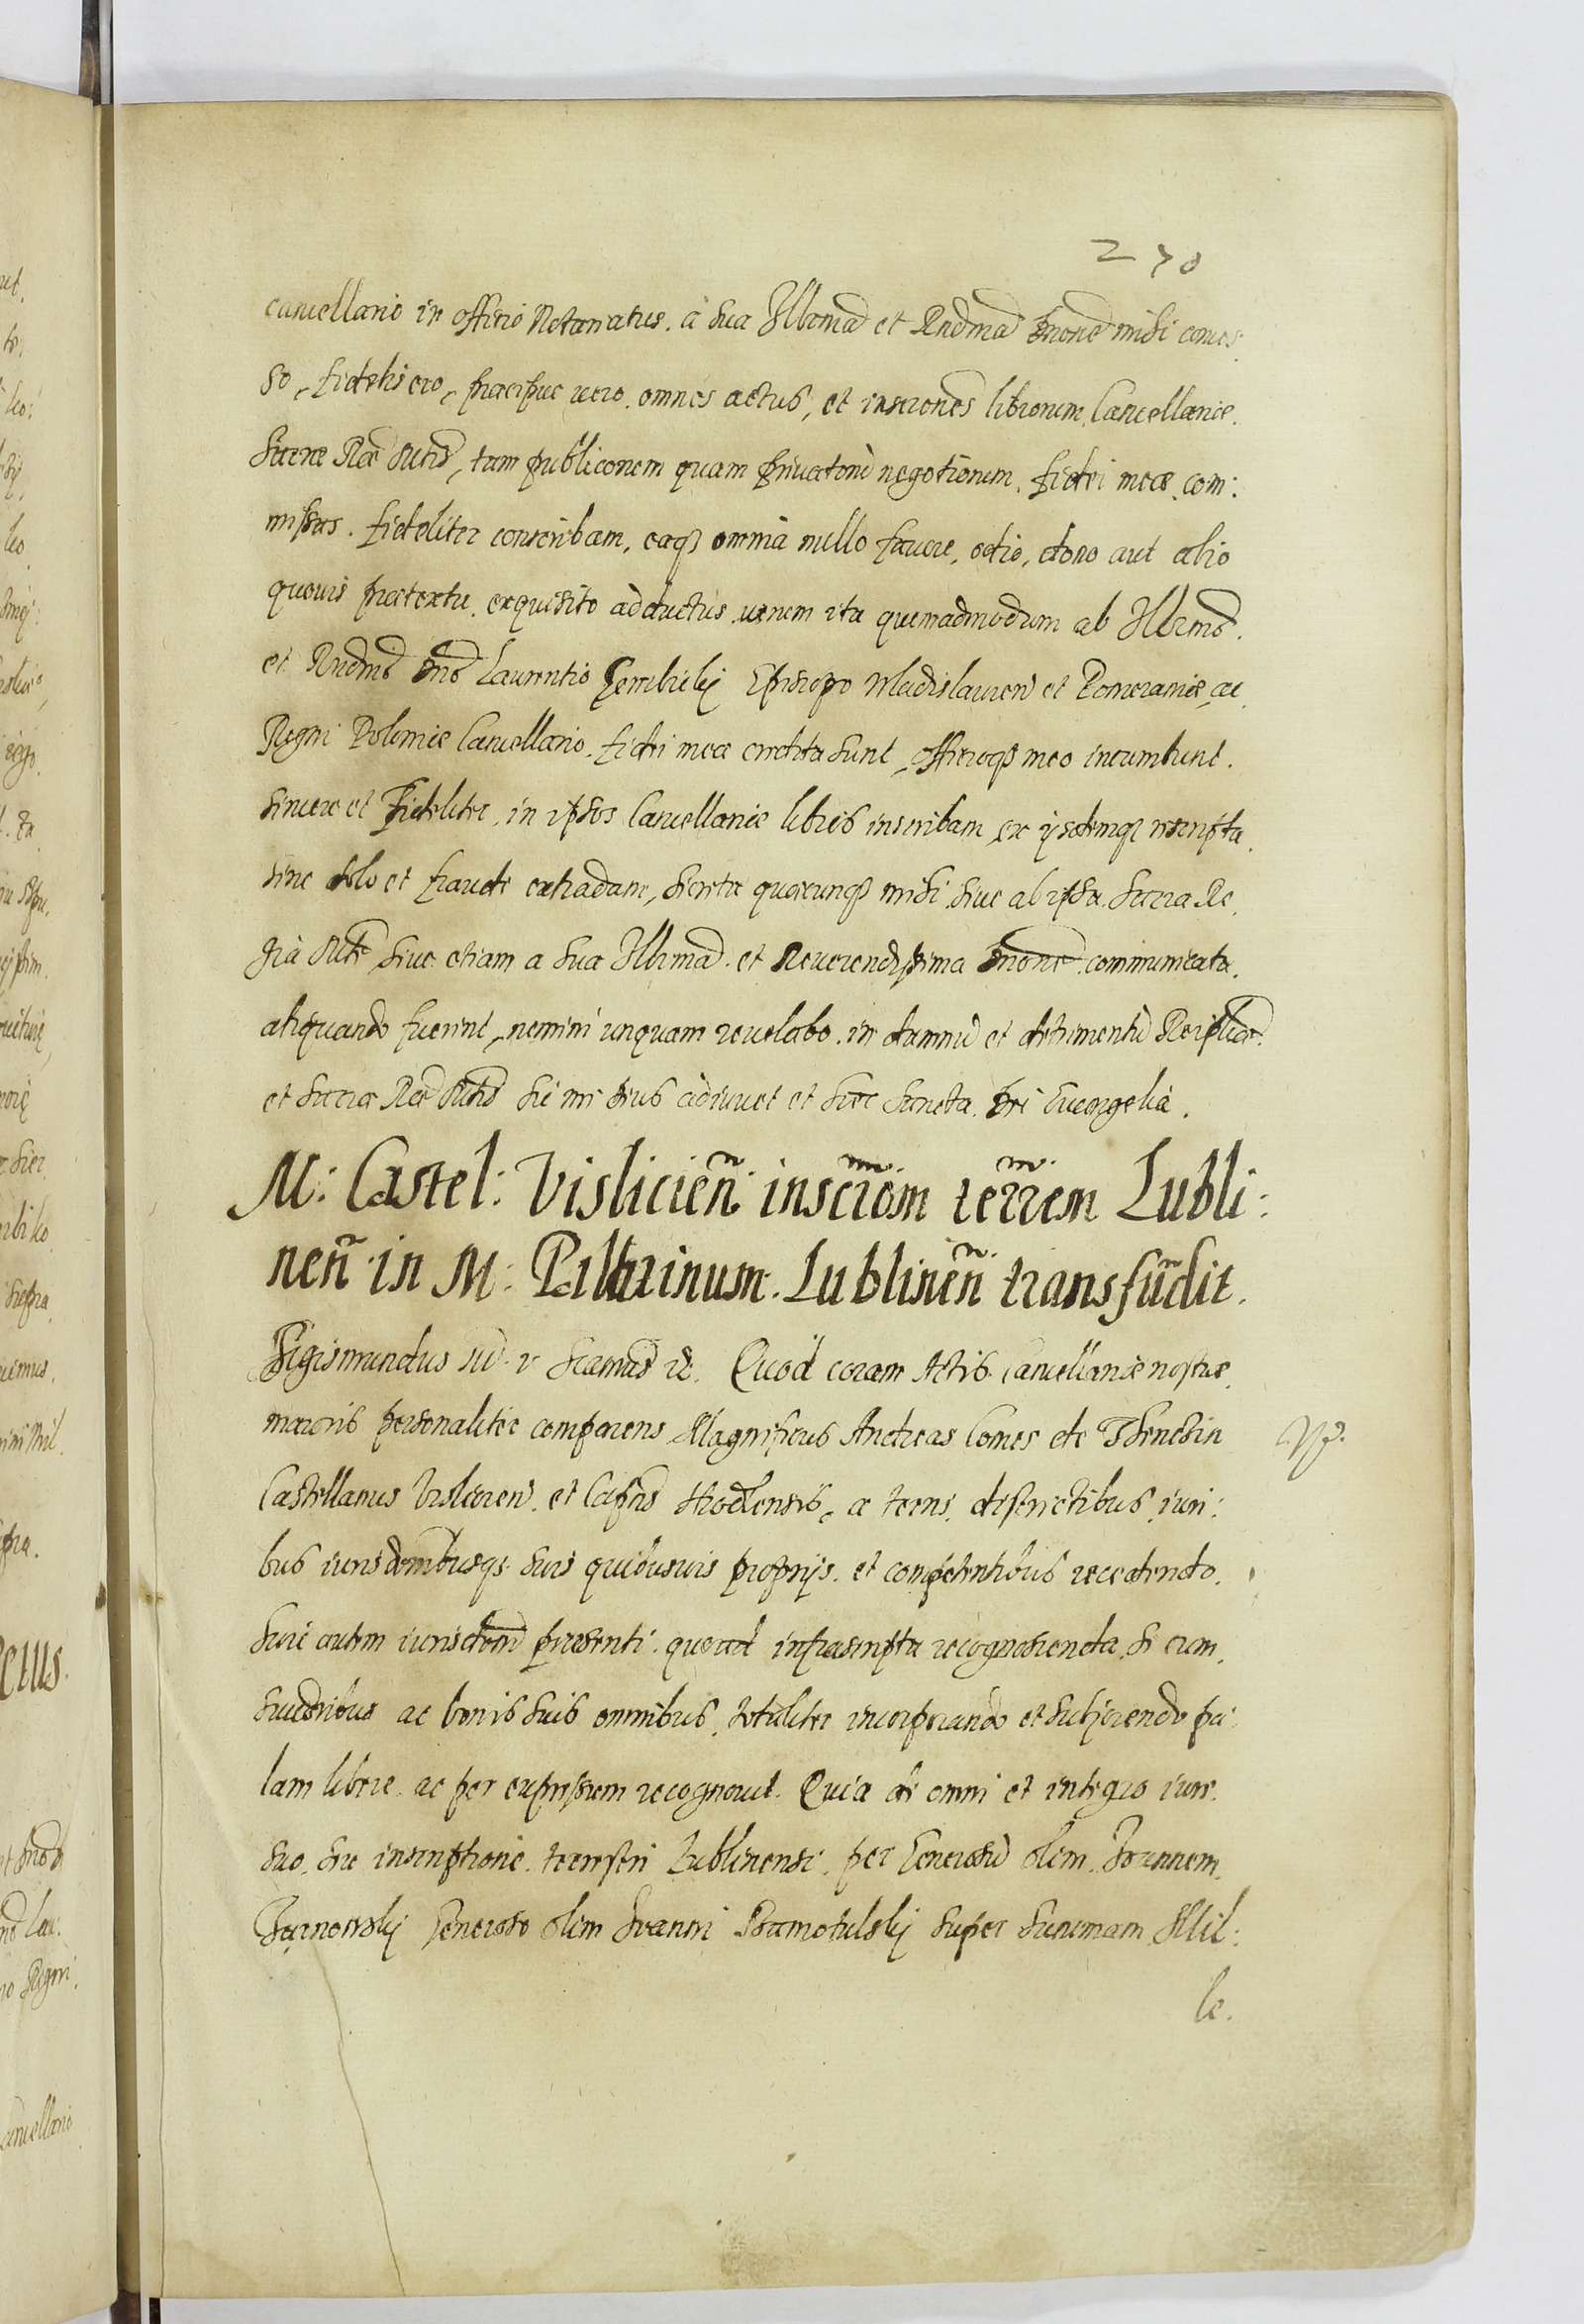 270
cancellario in officio Notariatus. a sua Illrma et Rndma Dnone mihi conces:
so, fidelis ero, praecipue vero. omnes actus, et inscrones librorum Cancellariae.
Sacrae Rae Mtis, tam publicorum quam privatoru negotiorum. fidei meae com:
missas. fideliter conscribam, eaqs omnia nullo favore, odio, dono aut alio
quovis praetextu. exquisito adductus verum ita quemadmodum ab Illrmo.
et Rndmo Dno Laurentio Gembicky Episcopo Wladislavien et Pomeraniae, ac
Regni Poloniae Cancellario. fidei meae credita sunt, officioqs meo incumbunt.
sincere et Fideliter, in ipsos Cancellariae libros inscribam ex ijsdemqs rescripta.
sine dolo et fraude extradam, secreta quaecunqs mihi sive ab ipsa. Sacra Re
gia Mte sive etiam a sua Illrma. et Reverendissima Dnone communicata.
aliquando fuerint, nemini unquam revelabo. in damnu et detrimentu Reiplicae.
et Sacrae Rae Mtis Sic me Deus adiuvet et haec Sancta. Dei Evangelia.
M: Castel: Vislicien̄. inscrōm terrem Lubli:
nen̄ in M: Pallatinum. Lublinen̄ transfūdit.
Sigismundus iii. r. Scamus &. Quod coram Actis Cancellariae nostrae.
maioris personaliter comparens Magnificus Andreas Comes de Thenczin
Castellanus Vislicien. et Capns Hrodlensis, a terris, districtibus, iuri:
bus iurisdonibusqs suis quibusvis proprijs. et competentibus recedendo.
Huic autem iurisdoni praesenti quoad infrascripta recognoscenda, se cum,
succribus ac bonis suis omnibus, totaliter incorporando et subijciendo pa:
lam libere. ac per expressum recognovit. Quia de omni et integro iure.
suo, sive inscriptione. terrestri Lublinensi, per Generosu olim. Ioannem.
Czarnowsky Generoso olim Ioanni Szamotulsky super summam Mil:
le.